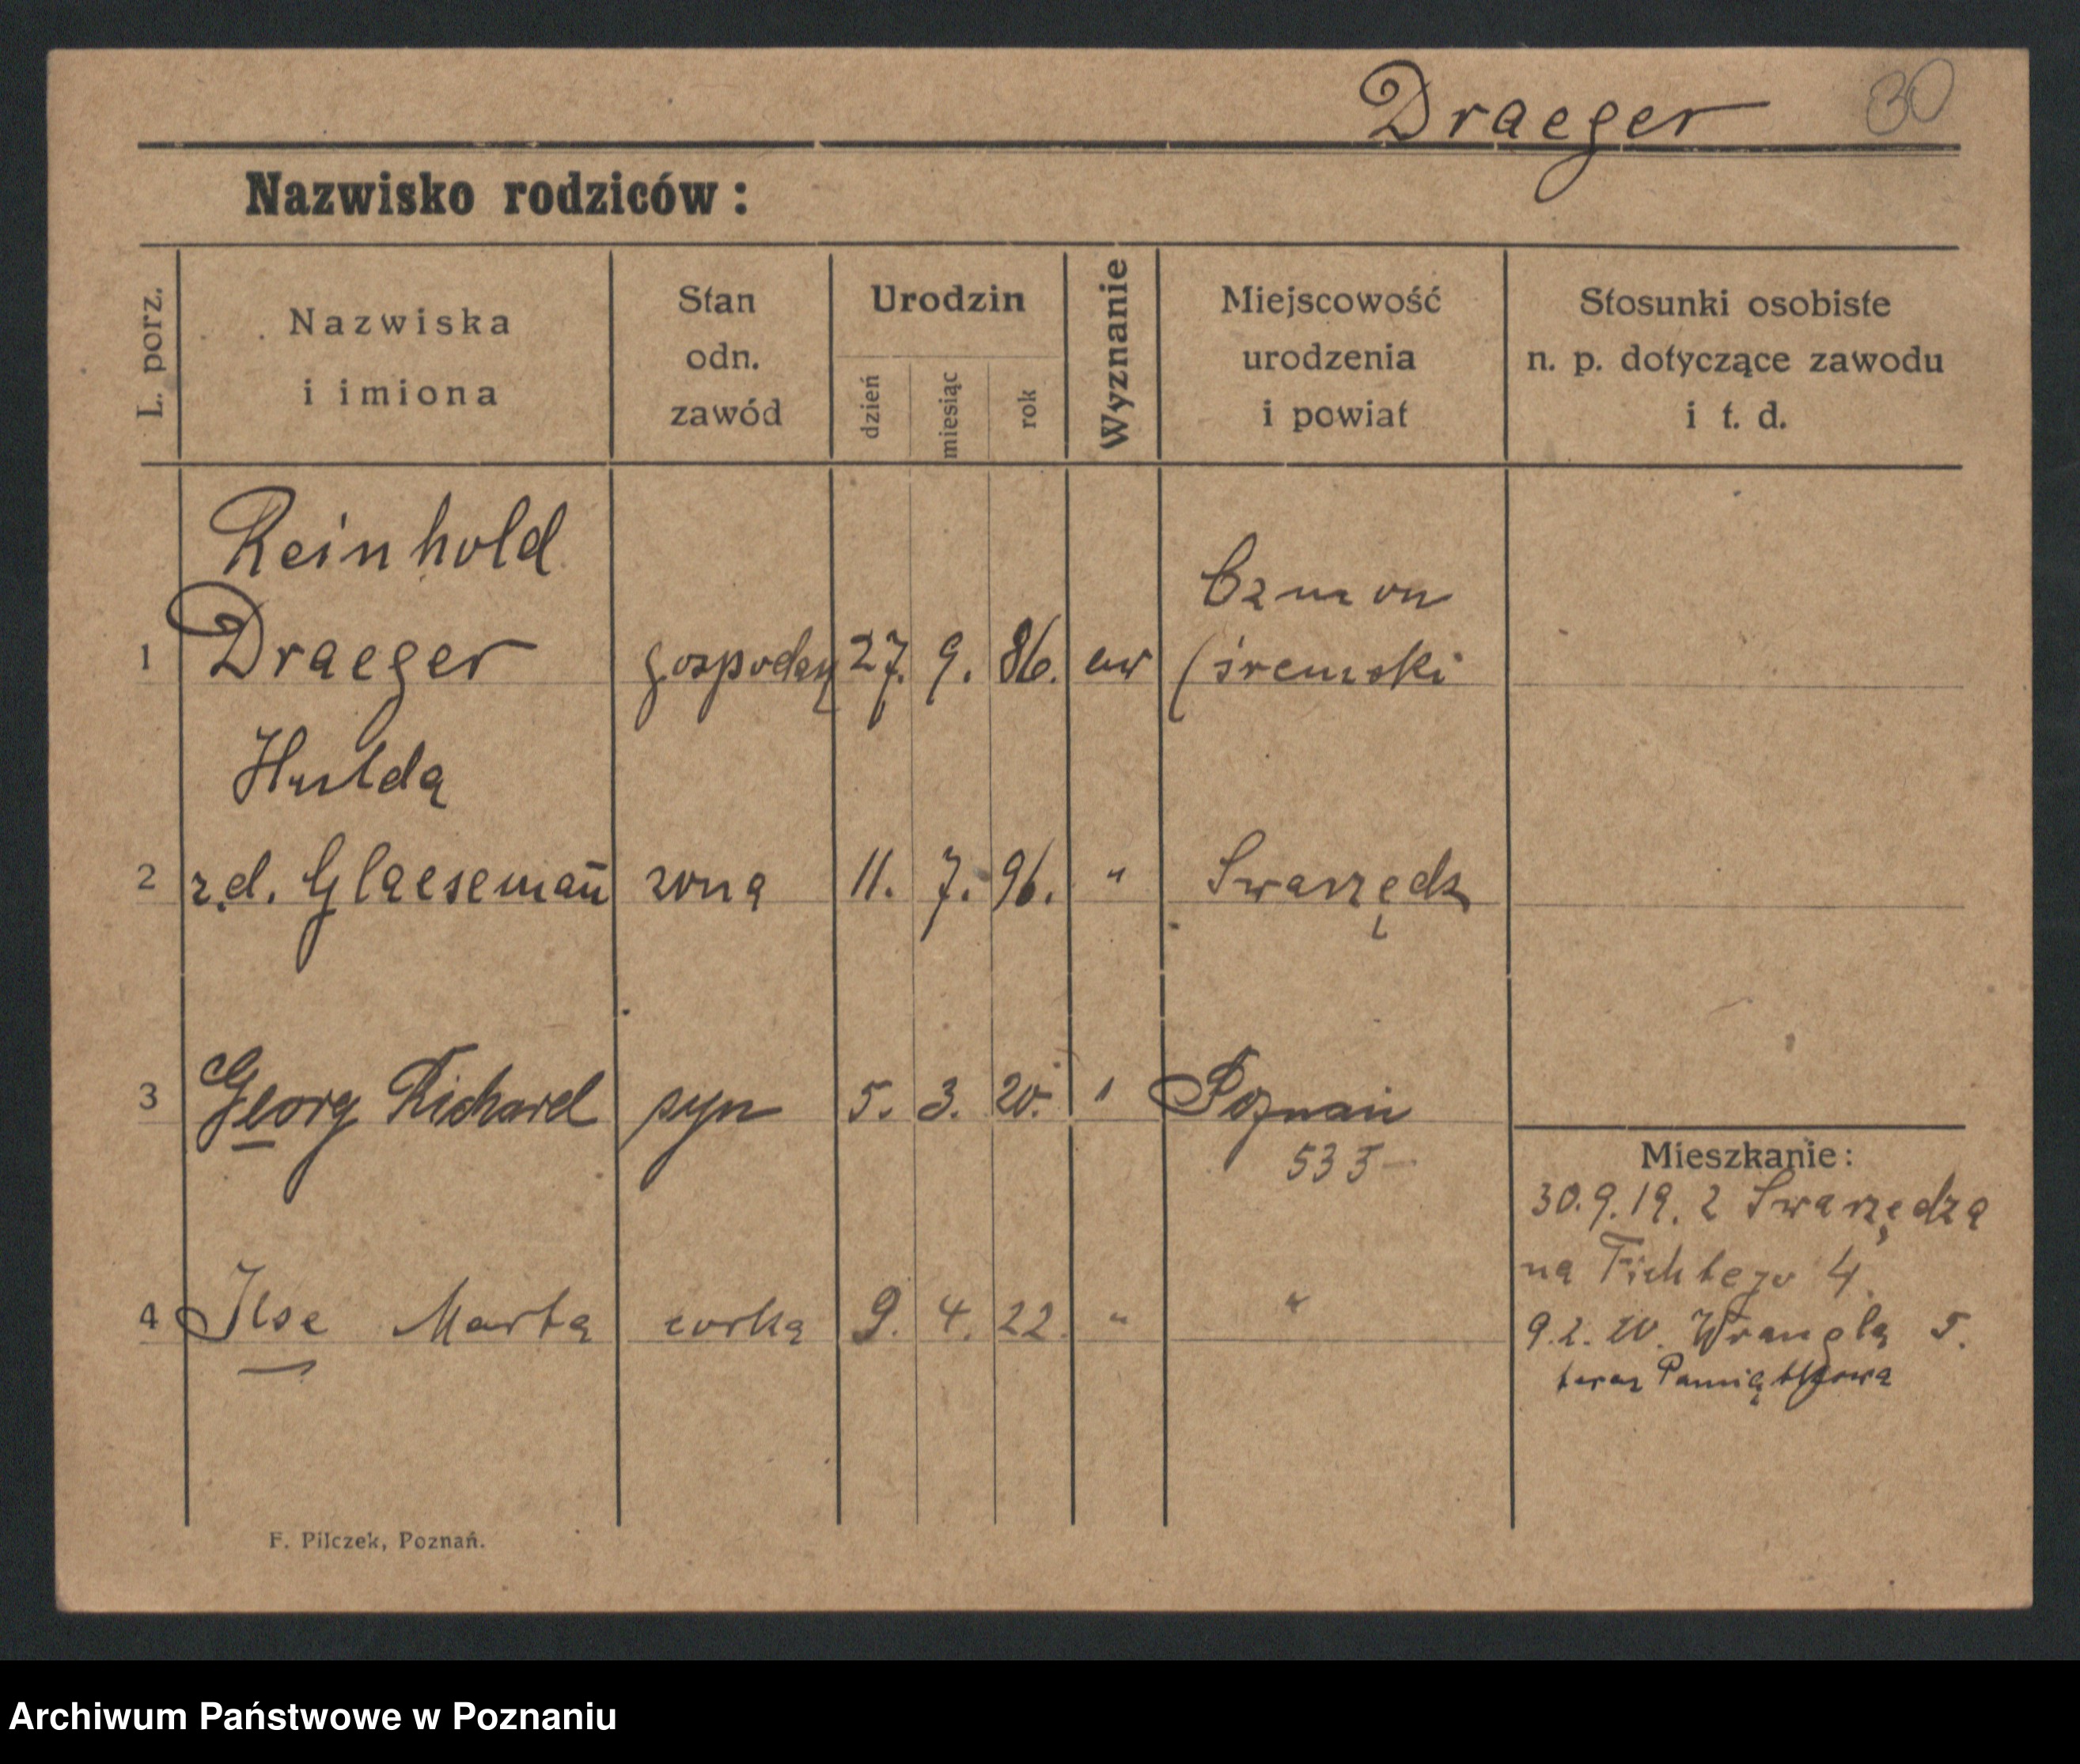 Draeger 30
Nazwisko rodziców:
L. porz.
Nazwiska
i imiona
Stan
odn.
zawód
Urodzin
dzień
miesiąc
rok
Wyznanie
Miejscowość
urodzenia
i powiat
Stosunki osobiste
n. p. dotyczące zawodu
i t. d.
Reinhold
1 Draeger gospodarz 27. 9. 86. ew
Czmon
(śremski
Hulda
2 z.d. Glaesemañ zona 11. 7. 96. " Swarzędz
3 Georg Richard syn 5. 3. 20. " Poznań
535-
4 Ilse Marta corka 9. 4. 22. " "
Mieszkanie:
30.9.19. z Swarzędza
na Fichtego 4.
9.2.20. Wrangla 5.
teraz Pamiątkowa
F. Pilczek, Poznań.
Archiwum Państwowe w Poznaniu